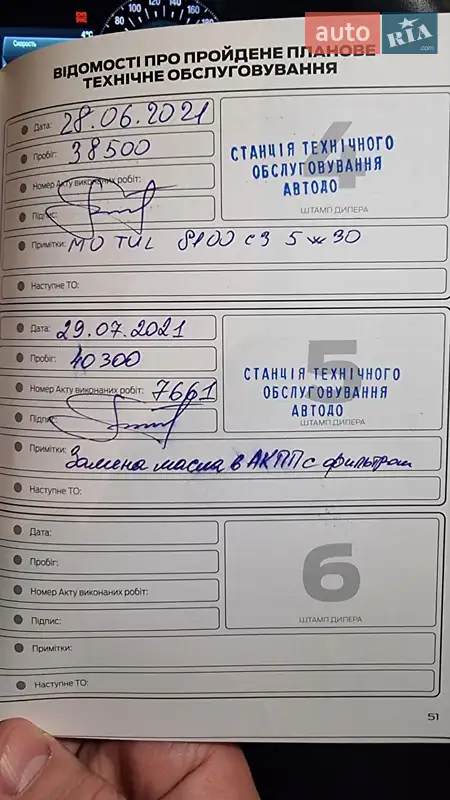 Скорость
4°C
80 100 120 140 160 180
auto RIA .com
ВІДОМОСТІ ПРО ПРОЙДЕНЕ ПЛАНОВЕ
ТЕХНІЧНЕ ОБСЛУГОВУВАННЯ
Дата: 28.06.2021
Пробіг: 38500
Номер Акту виконаних робіт:
Підпис:
4
СТАНЦІЯ ТЕХНІЧНОГО
ОБСЛУГОВУВАННЯ
АВТОДО
ШТАМП ДИЛЕРА
Примітки: MOTUL 8100 c3 5ж30
Наступне ТО:
Дата: 29.07.2021
Пробіг: 40300
Номер Акту виконаних робіт: 7661
Підпис:
5
СТАНЦІЯ ТЕХНІЧНОГО
ОБСЛУГОВУВАННЯ
АВТОДО
ШТАМП ДИЛЕРА
Примітки: Замена масла в АКПП с фильтром
Наступне ТО:
Дата:
Пробіг:
Номер Акту виконаних робіт:
Підпис:
6
ШТАМП ДИЛЕРА
Примітки:
Наступне ТО:
51